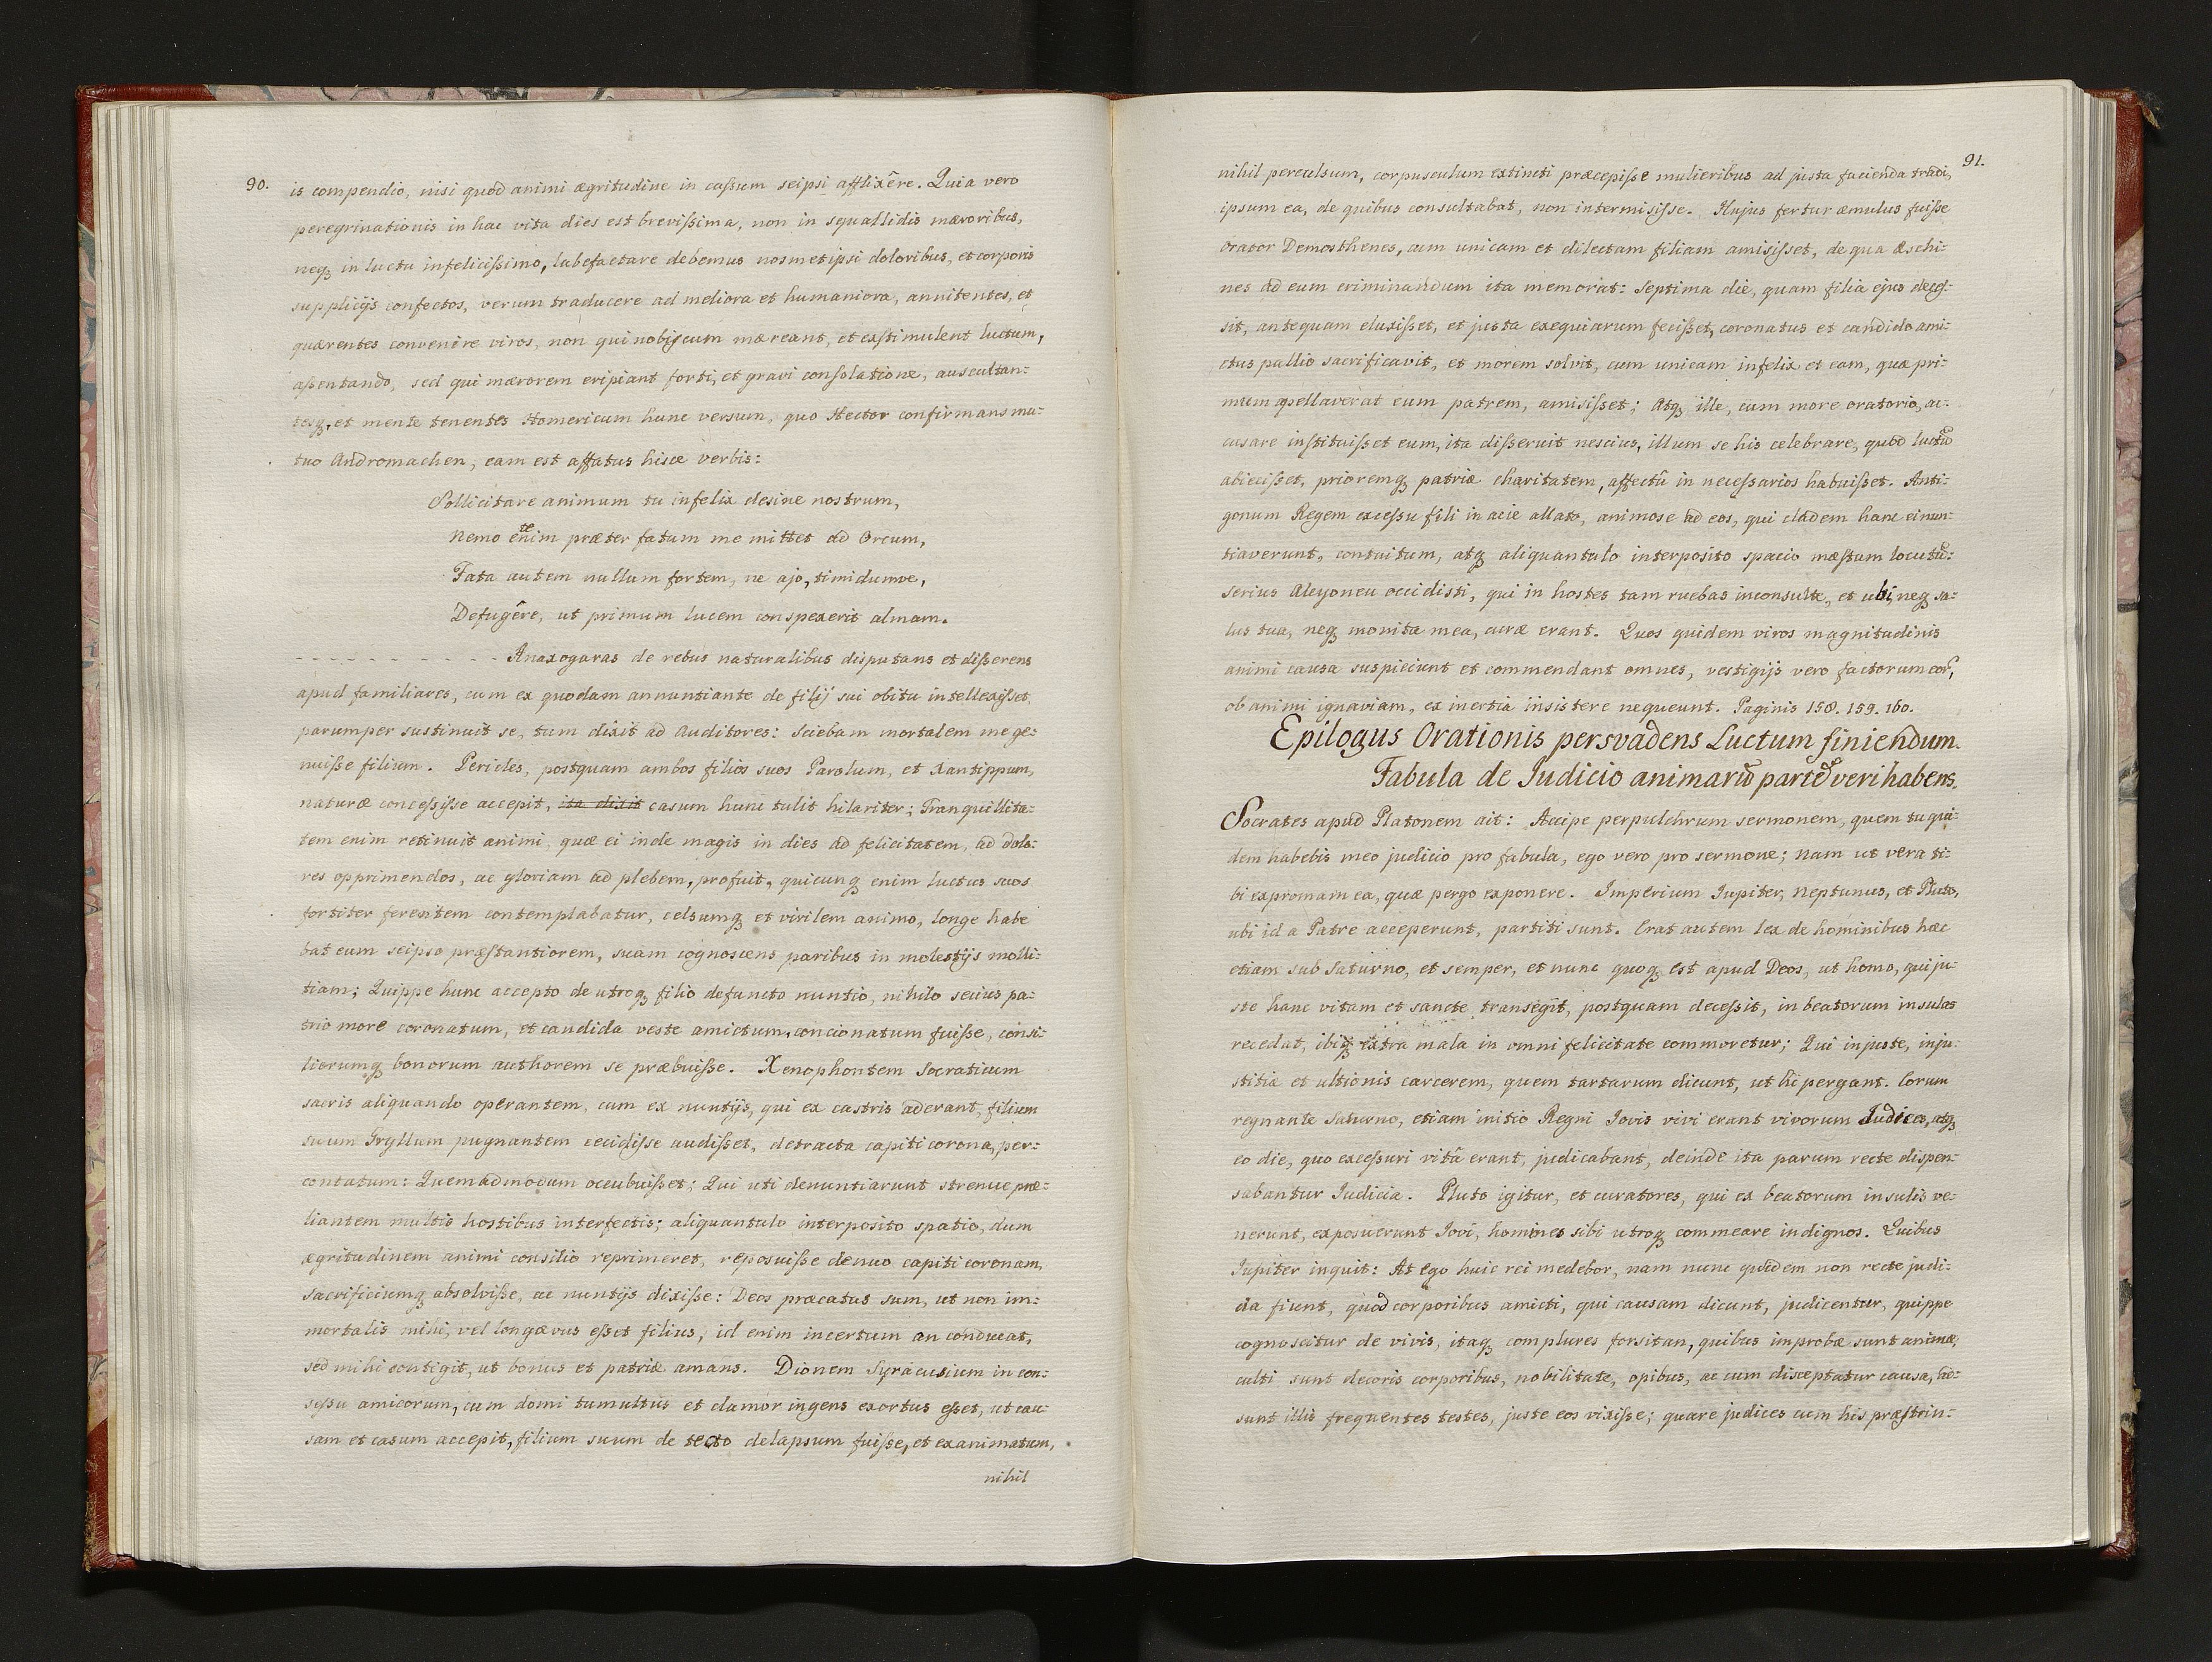 90.
is compendio, nisi quod animi ægritudine in caßum seipsi afflixêre. Quia vero
peregrinationis in hac vita dies est brevißima, non in squallidis mæroribus,
neq₃ in luctu infelicißimo, labefactare debemus nosmetipsi doloribus, et corporis
supplicijs confectos, verum traducere ad meliora et humaniora, annitentes, et
quærentes convenire viros, non qui nobiscum mæreant, et exstimulent luctum,
aßentando, sed qui mærorem eripiant forti, et gravi consolatione, auscultan-
tesq₃, et mente tenentes Homericum hunc versum, quo Hector confirmans mu-
tuo Andromachen, eam est affatus hisce verbis:
Sollicitare animum tu infelix desine nostrum,
Nemo enim te præter fatum me mittet ad Orcum,
Fata autem nullum fortem, ne ajo, timidumve,
Defugêre, ut primum lucem conspexerit almam.
- - - - - - - - - - Anaxogaras de rebus naturalibus disputans et dißerens
apud familiares, cum ex quodam annuntiante de filij sui obitu intellexißet,
parumper sustinuit se, tum dixit ad Auditores: Sciebam mortalem me ge-
nuiße filium. Pericles, postquam ambos filios suos Paralum, et Xantippum,
naturæ conceßiße accepit, ita dixit casum hunc tulit hilariter; Tranquillita-
tem enim retinuit animi, quæ ei inde magis in dies ad felicitatem, ad dolo-
res opprimendos, ac gloriam ad plebem, profuit, quicunq₃ enim luctus suos
fortiter ferentem contemplabatur, celsumq₃ et virilem animo, longe habe
bat eum seipso præstantiorem, suam cognoscens paribus in molestijs molli-
tiam; Quippe hunc accepto de utroq₃ filio defuncto nuntio, nihilo secius pa-
trio more coronatum, et candida veste amictum, concionatum fuiße, consi-
liorumq₃ bonorum authorem se præbuiße. Xenophontem Socraticum
sacris aliquando operantem, cum ex nuntijs, qui ex castris aderant, filium
suum Gryllum pugnantem cecidiße audißet, detracta capiti corona, per-
contatum: Quemadmodum occubuißet; Qui uti denuntiarunt strenue præ-
liantem multis hostibus interfectis; aliquantulo interposito spatio, dum
ægritudinem animi consilio reprimeret, reposuiße denuo capiti coronam,
sacrificiumq₃ absolviße, ac nuntijs dixiße: Deos præcatus sum, ut non im-
mortalis mihi, vel longævus eßet filius, id enim incertum an conducat,
sed mihi contigit, ut bonus et patriæ amans. Dionem Syracusium in con-
seßu amicorum, cum domi tumultus et clamor ingens exortus eßet, ut cau-
sam et casum accepit, filium suum de tecto delapsum fuiße, et exanimatum,
nihil
91.
nihil perculsum, corpusculum extincti præcepiße mulieribus ad justa facienda tradi,
ipsum ea, de quibus consultabat, non intermisiße. Hujus fertur æmulus fuiße
Orator Demosthenes, cum unicam et dilectam filiam amisißet, de qua Æschi-
nes ad eum criminandum ita memorat: Septima die, quam filia ejus deceß-
sit, antequam eluxißet, et justa exequiarum fecißet, coronatus et candido ami-
ctus pallio sacrificavit, et morem solvit, cum unicam infelix et eam, quæ pri-
mum apellaverat eum patrem, amisißet; Atq₃ ille, cum more oratorio, ac-
cusare instituißet eum, ita disseruit nescius, illum se his celebrare, quod luctū
abiecißet, prioremq₃ patriæ charitatem, affectû in neceßarios habuißet. Anti-
gonum Regem exceßu fili in acie allato, animose ad eos, qui cladem hanc ei nun-
tiaverunt, contuitum, atq₃ aliquantulo interposito spacio mæstum locutū:
Serius Alcyoneu occidisti, qui in hostes tam ruebas inconsulte, et ubi, neq₃ sa-
lus tua, neq₃ monita mea, curæ erant. Quos quidem viros magnitudinis
animi causa suspiciunt et commendant omnes, vestigijs vero factorum eor̃,
ob animi ignaviam, ex inertia insistere nequeunt. Paginis 158. 159. 160.
Epilogus Orationis persvadens Luctum finiendum.
Fabula de Judicio animarū partē veri habens.
Socrates apud Platonem ait: Accipe perpulchrum sermonem, quem tu qui-
dem habebis meo judicio pro fabula, ego vero pro sermone; nam ut vera ti-
bi expromam ea, quæ pergo exponere. Imperium Jupiter, Neptunus, et Pluto,
ubi id a Patre acceperunt, partiti sunt. Erat autem lex de hominibus hæc
etiam sub Saturno, et semper, et nunc quoq₃ est apud Deos, ut homo, qui ju-
ste hanc vitam et sancte transegit, postquam deceßit, in beatorum insulas
recedat, ibiq₃ extra mala in omni felicitate commoretur; Qui injuste, inju-
stitiæ et ultionis carcerem, quem tartarum dicunt, ut hi pergant. Eorum
regnante Saturno, etiam initio Regni Jovis vivi erant vivorum Judices, atq₃
eo die, quo exceßuri vitâ erant, judicabant, deinde ita parum recte dispen-
sabantur Judicia. Pluto igitur, et curatores, qui ex beatorum insulis ve-
nerunt, exposuerunt Jovi, homines sibi utroq₃ commeare indignos. Quibus
Jupiter inquit: At ego huic rei medebor, nam nunc quidem non recte judi-
cia fiunt, quod corporibus amicti, qui causam dicunt, judicentur, quippe
cognoscitur de vivis, itaq₃ complures forsitan, quibus improbæ sunt animæ,
culti sunt decoris corporibus, nobilitate, opibus, ac cum disceptatur causa, ad-
sunt illis frequentes testes, juste eos vixiße; quare judices cum his præstrin-